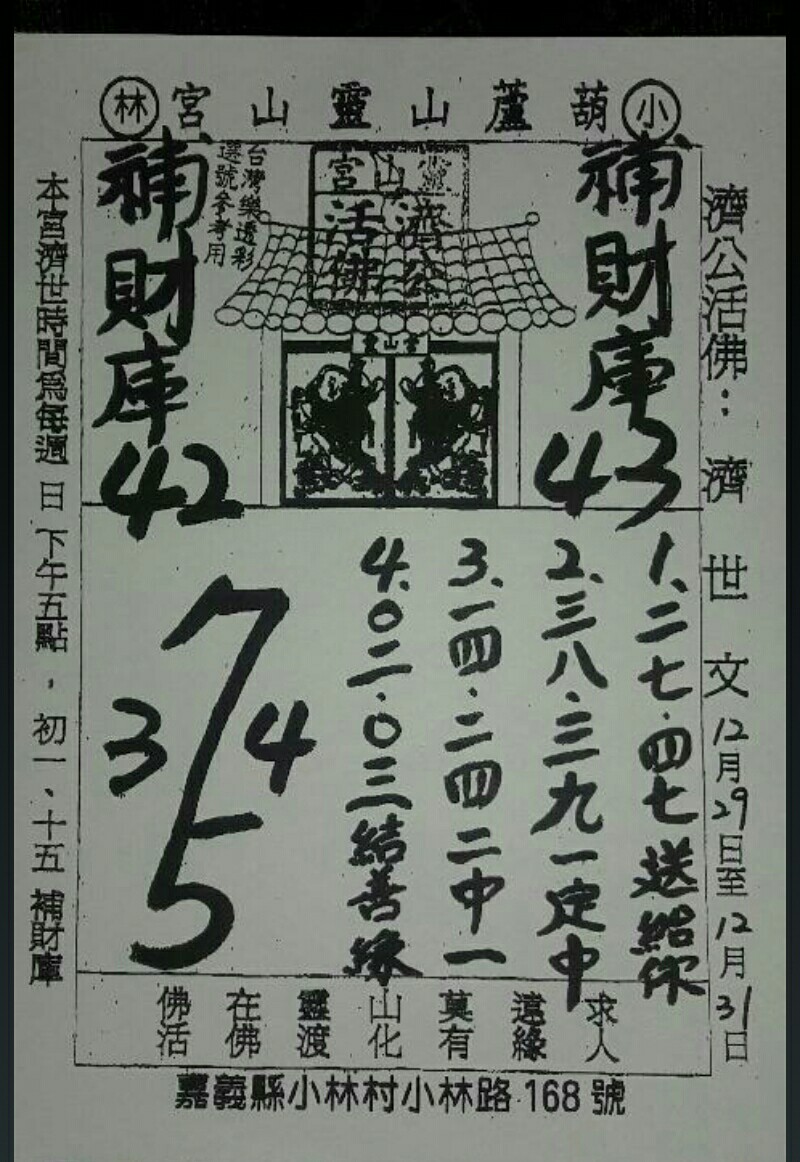 小 葫蘆山靈山宮 林
濟公活佛：濟世文12月29日至12月31日
補財庫43
台灣樂透彩
選號參考用
靈山宮
濟公
活佛
宮山靈
補財庫42
1、二七.四七送給你
2、三八.三九一定中
3、一四.二四二中一
4、0二.0三結善緣
7
3 4
5
求人
遠緣
莫有
山化
靈渡
在佛
佛活
本宮濟世時間為每週日下午五點，初一、十五補財庫
嘉義縣小林村小林路168號